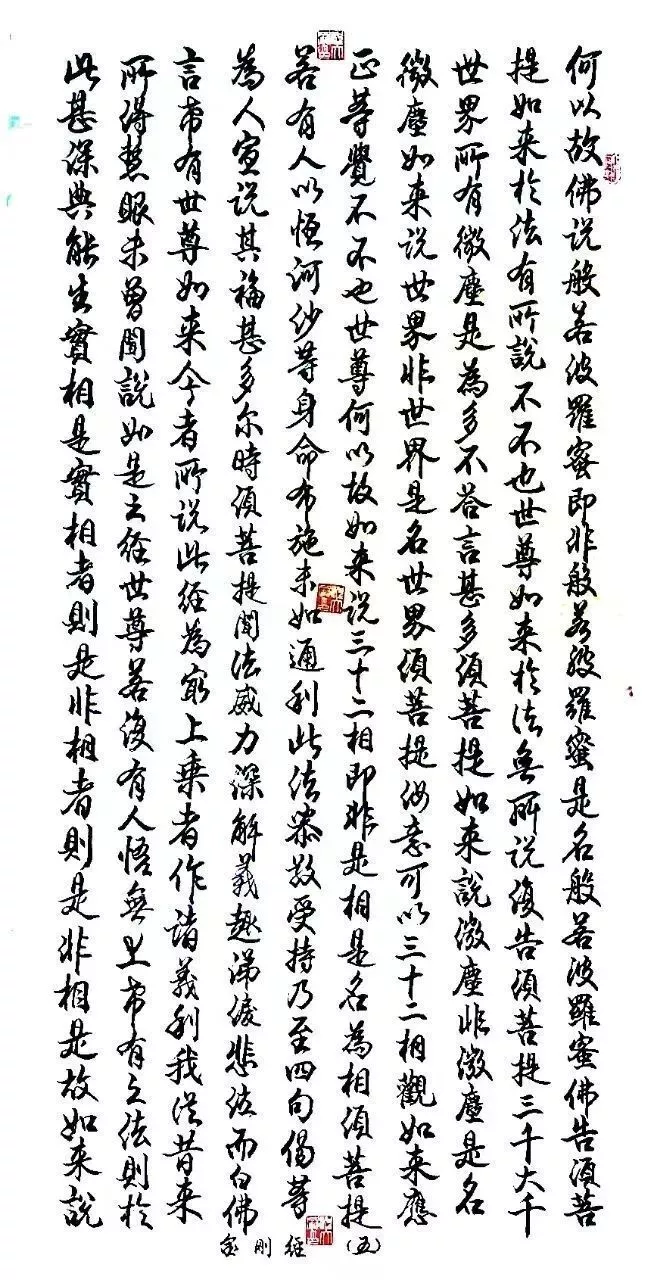 何以故佛说般若波羅蜜即非般若波羅蜜是名般若波羅蜜佛告須菩
提如来於法有所說不不也世尊如来於法無所说復告須菩提三千大千
世界所有微塵是為多不答言甚多須菩提如来說微塵非微塵是名
微塵如来说世界非世界是名世界須菩提汝意可以三十二相觀如来應
正等覺不不也世尊何以故如来说三十二相即非是相是名為相須菩提
若有人以恒河沙等身命布施未如通利此法恭敬受持乃至四句偈等
為人宣说其福甚多尔時須菩提聞法威力深解義趣涕淚悲泣而白佛
言希有世尊如来今者所说此经為最上乘者作諸義利我從昔来
所得慧眼未曾聞說如是之经世尊若復有人悟無上希有之法則於
此甚深典能生實相是實相者則是非相者則是非相是故如来說
金刚经（五）